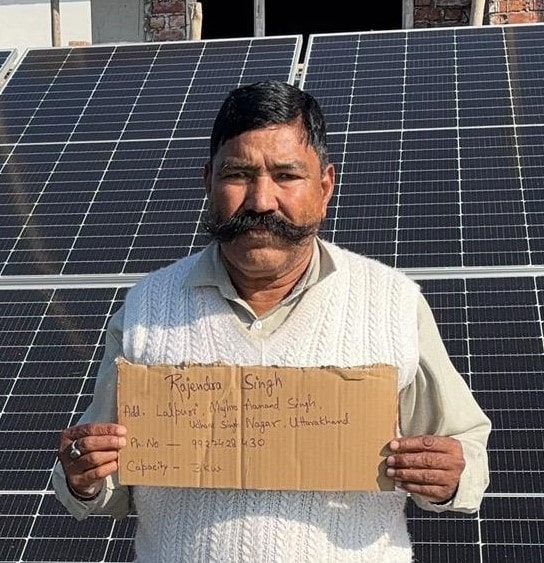 Rajendra Singh
Add. Lalpuri, Majhra Aanand Singh,
Udham Singh Nagar, Uttarakhand
Ph. No — 9927428430
Capacity - 3kw